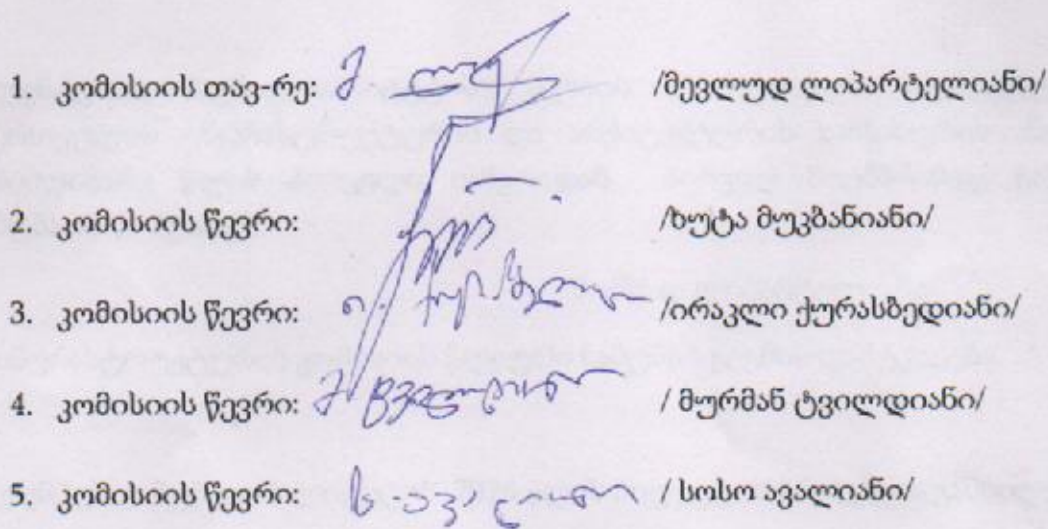 1. კომისიის თავ-რე: /მევლუდ ლიპარტელიანი/
2. კომისიის წევრი: /ხუტა მუკბანიანი/
3. კომისიის წევრი: /ირაკლი ქურასბედიანი/
4. კომისიის წევრი: / მურმან ტვილდიანი/
5. კომისიის წევრი: / სოსო ავალიანი/